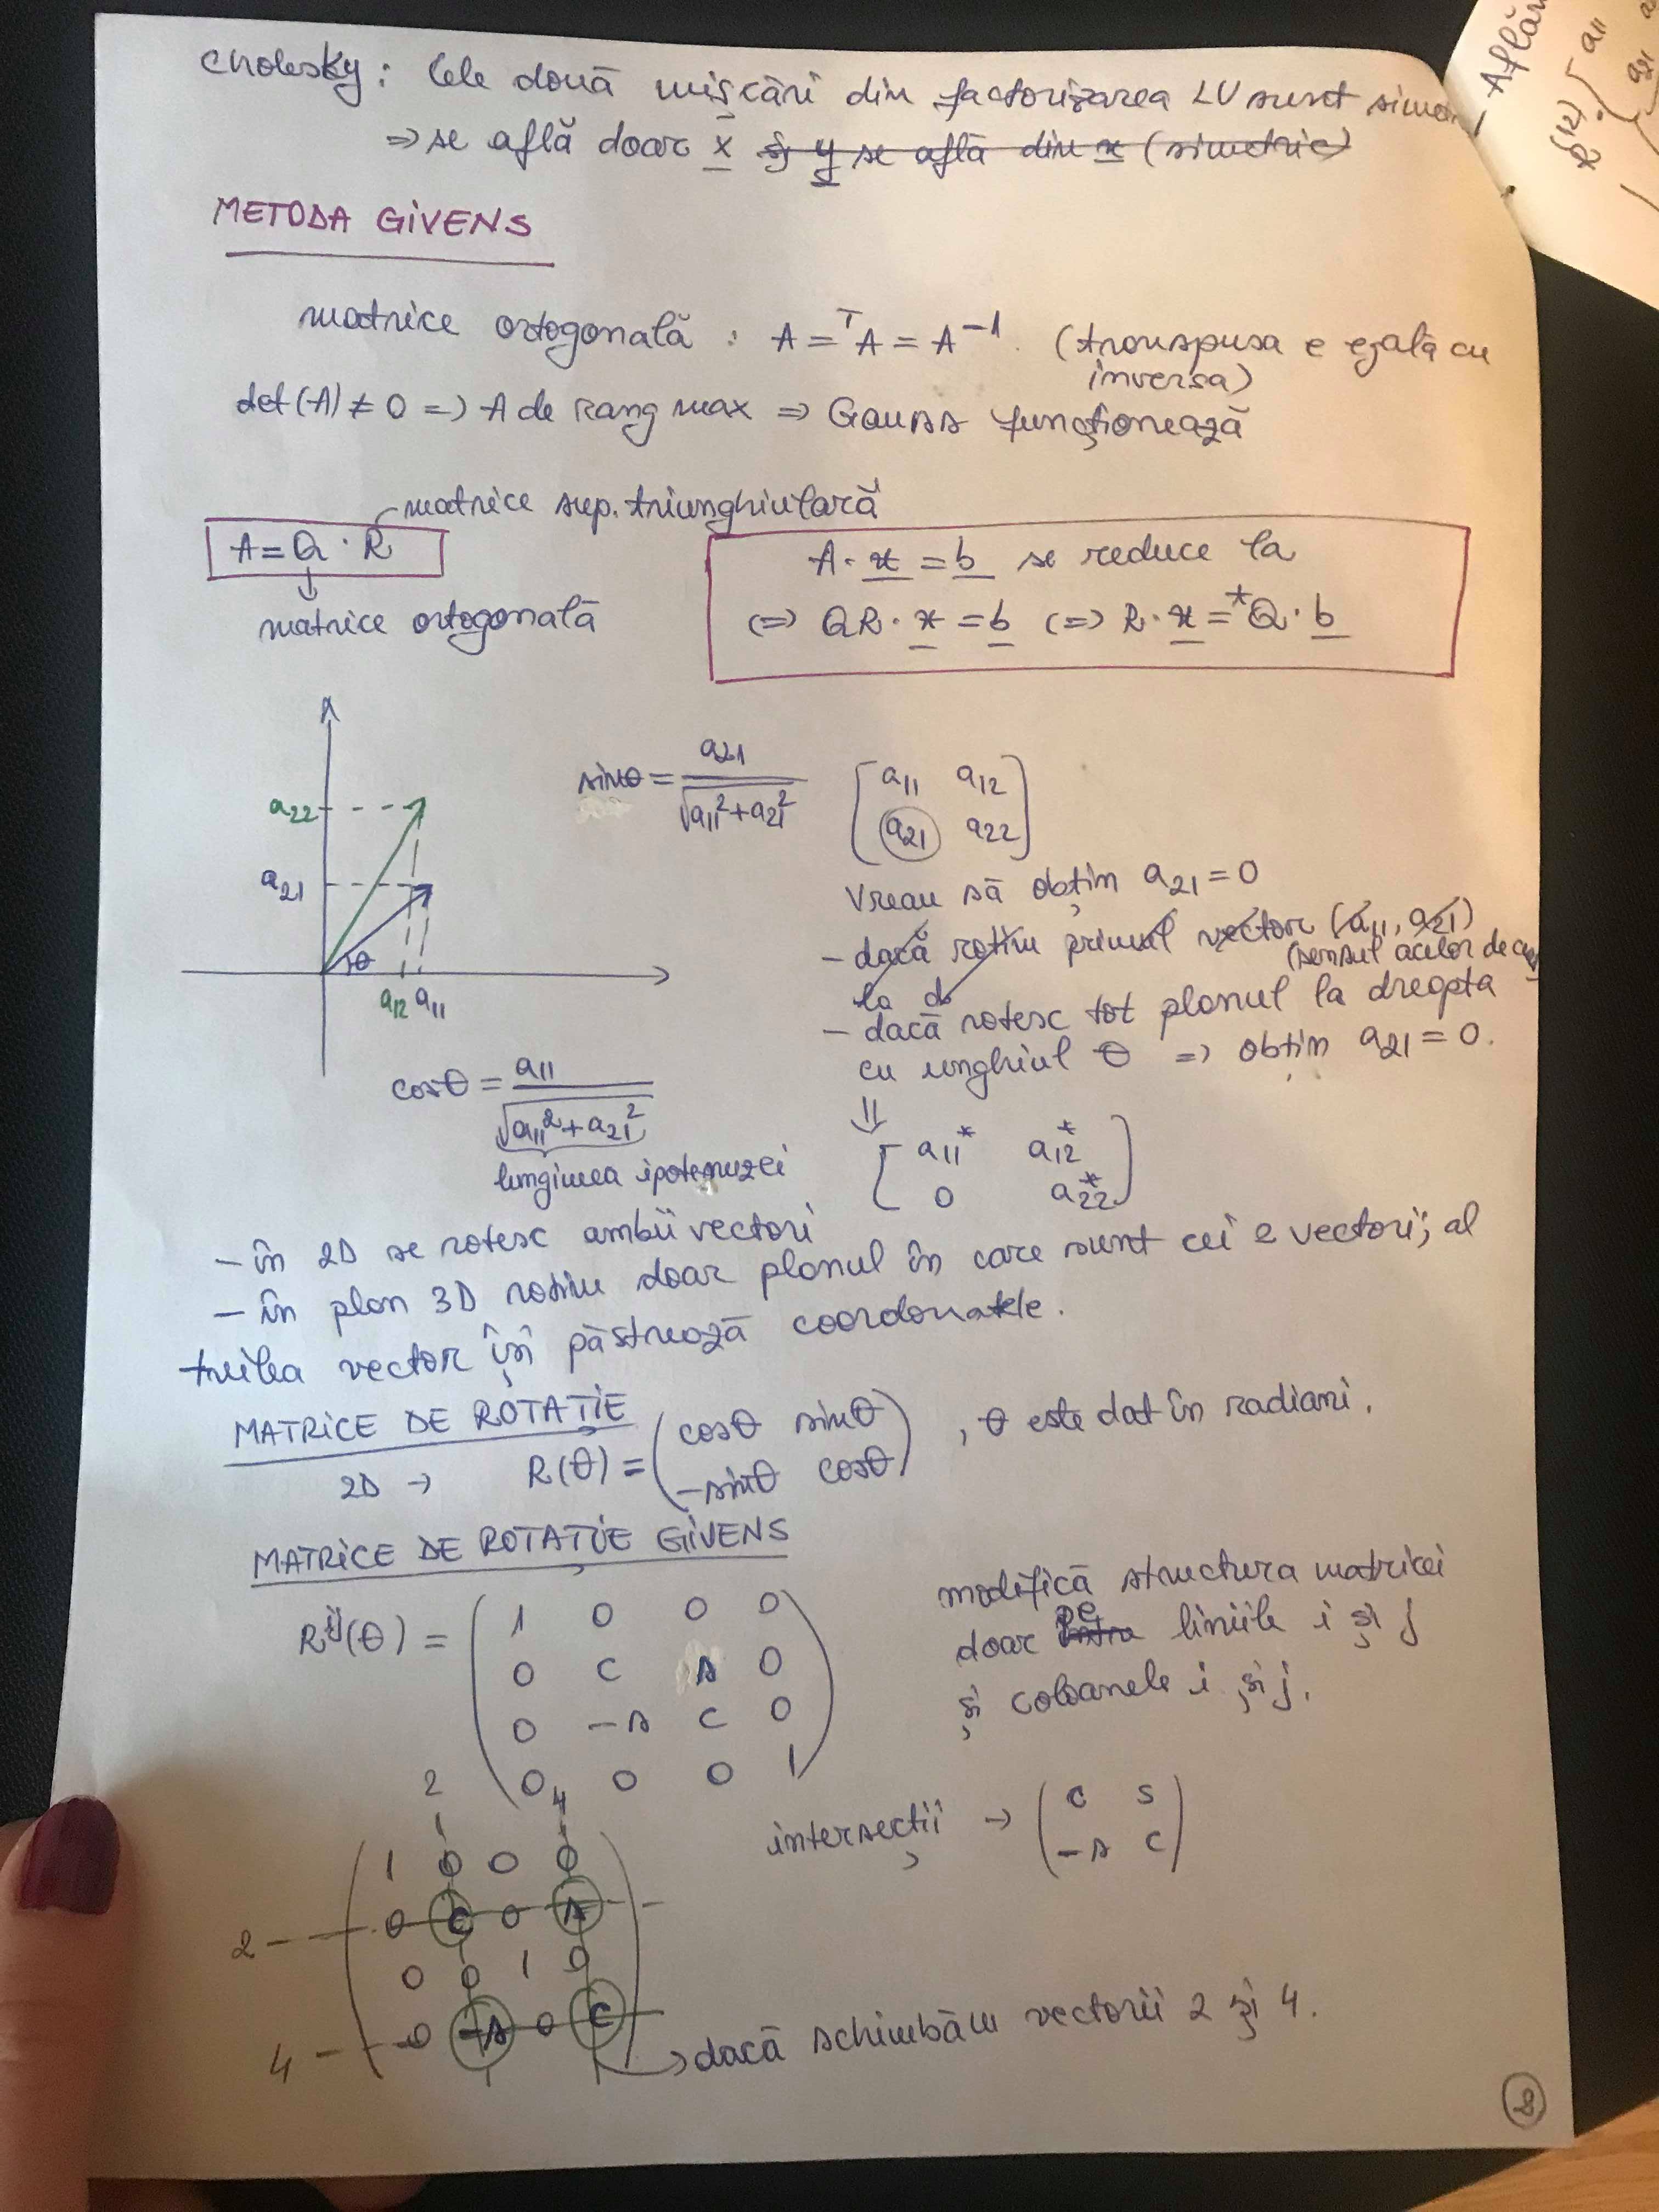 Cholesky: Cele două mișcări din factorizarea LU sunt
⇒ se află doar x și y se află din x (simetric)
METODA GIVENS
matrice ortogonală : A = ᵀA = A⁻¹. (transpusa e egală cu
inversa)
det(A) ≠ 0 ⇒ A de rang max ⇒ Gauss funcționează
matrice sup. triunghiulară
A = Q · R
matrice ortogonală
A · x = b se reduce la
(⇒ QR · x = b (⇒ R · x = *Q · b
a22
a21
θ
a12 a11
sinθ = a21 / √a11² + a21²
[a11 a12
a21 a22]
Vreau să obțim a21 = 0
– dacă rotim primul vector (a11, a21)
(sensul acelor de
la d
– dacă rotesc tot planul la dreapta
cu unghiul θ ⇒ obțim a21 = 0.
cosθ = a11 / √a11² + a21²
lungimea ipotenuzei
⇓
[a11* a12*
0 a22*]
– în 2D se rotesc ambii vectori
– în plan 3D rotim doar planul în care sunt cei 2 vectori; al
treilea vector își păstrează coordonatele.
MATRICE DE ROTAȚIE
2D → R(θ) = (cosθ sinθ
-sinθ cosθ) , θ este dat în radiani.
MATRICE DE ROTAȚIE GIVENS
R^ij(θ) = (1 0 0 0
0 c s 0
0 -s c 0
0 0 0 1)
modifică structura matricei
doar pe liniile i și j
și coloanele i și j.
2 4
(1 0 0 0
2 -- 0 c 0 s
0 0 1 0
4 -- 0 -s 0 c)
intersecții → (c s
-s c)
→ dacă schimbăm vectorii 2 și 4.
8
Aflăm
R(12)
a11
a21